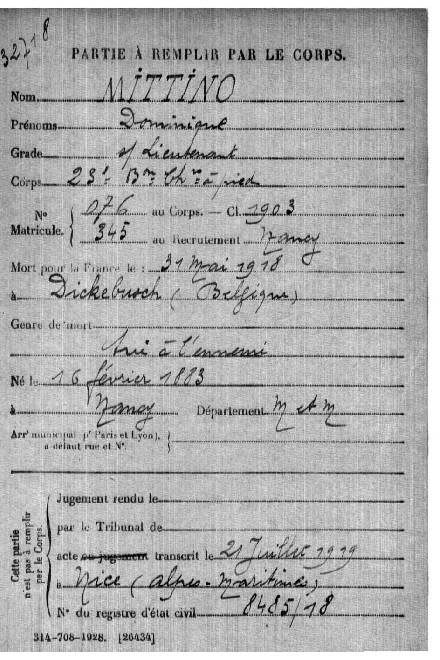 3278
PARTIE À REMPLIR PAR LE CORPS.
Nom MITTINO
Prénoms Dominique
Grade s/ Lieutenant
Corps 23e Bon Chrs à pied
No Matricule. { 076 au Corps. — Cl. 1903
345 au Recrutement Nancy
Mort pour la France le : 31 Mai 1918
à Dickebusch (Belgique)
Genre de mort
tué à l'ennemi
Né le 16 février 1883
à Nancy Département M et M
Arrt municipal (pr Paris et Lyon), à défaut rue et No.
Cette partie n'est pas à remplir par le Corps.
Jugement rendu le
par le Tribunal de
acte ou jugement transcrit le 21 Juillet 1919
à Nice (Alpes-Maritimes)
No du registre d'état civil 8485/18
314-708-1928. [26434]